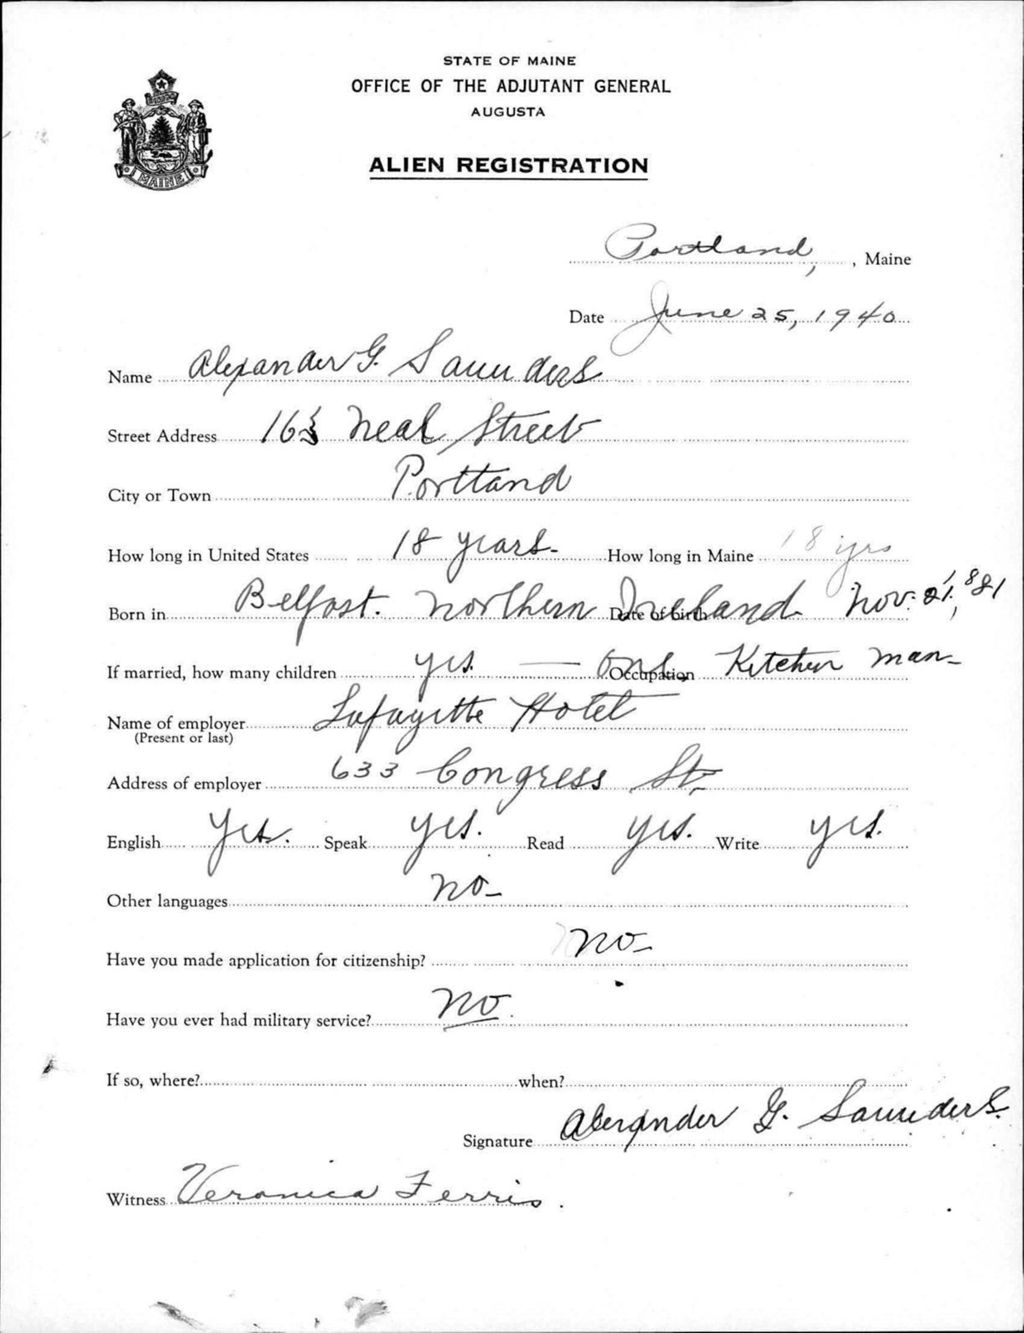 STATE OF MAINE
OFFICE OF THE ADJUTANT GENERAL
AUGUSTA
ALIEN REGISTRATION
MAINE
Portland, , Maine
Date June 25, 1940
Name Alexander G. Saunders
Street Address Neal Street
City or Town Portland
How long in United States 18 years. How long in Maine 18 yrs
Born in Belfast. Northern Ireland Date of birth Nov. 21, 1881
If married, how many children yes — One. Occupation Kitchen man
Name of employer Lafayette Hotel
(Present or last)
Address of employer 633 Congress St.
English yes. Speak yes. Read yes. Write yes.
Other languages no
Have you made application for citizenship? no
Have you ever had military service? no.
If so, where? when?
Signature Alexander G. Saunders.
Witness Veronica Ferris.